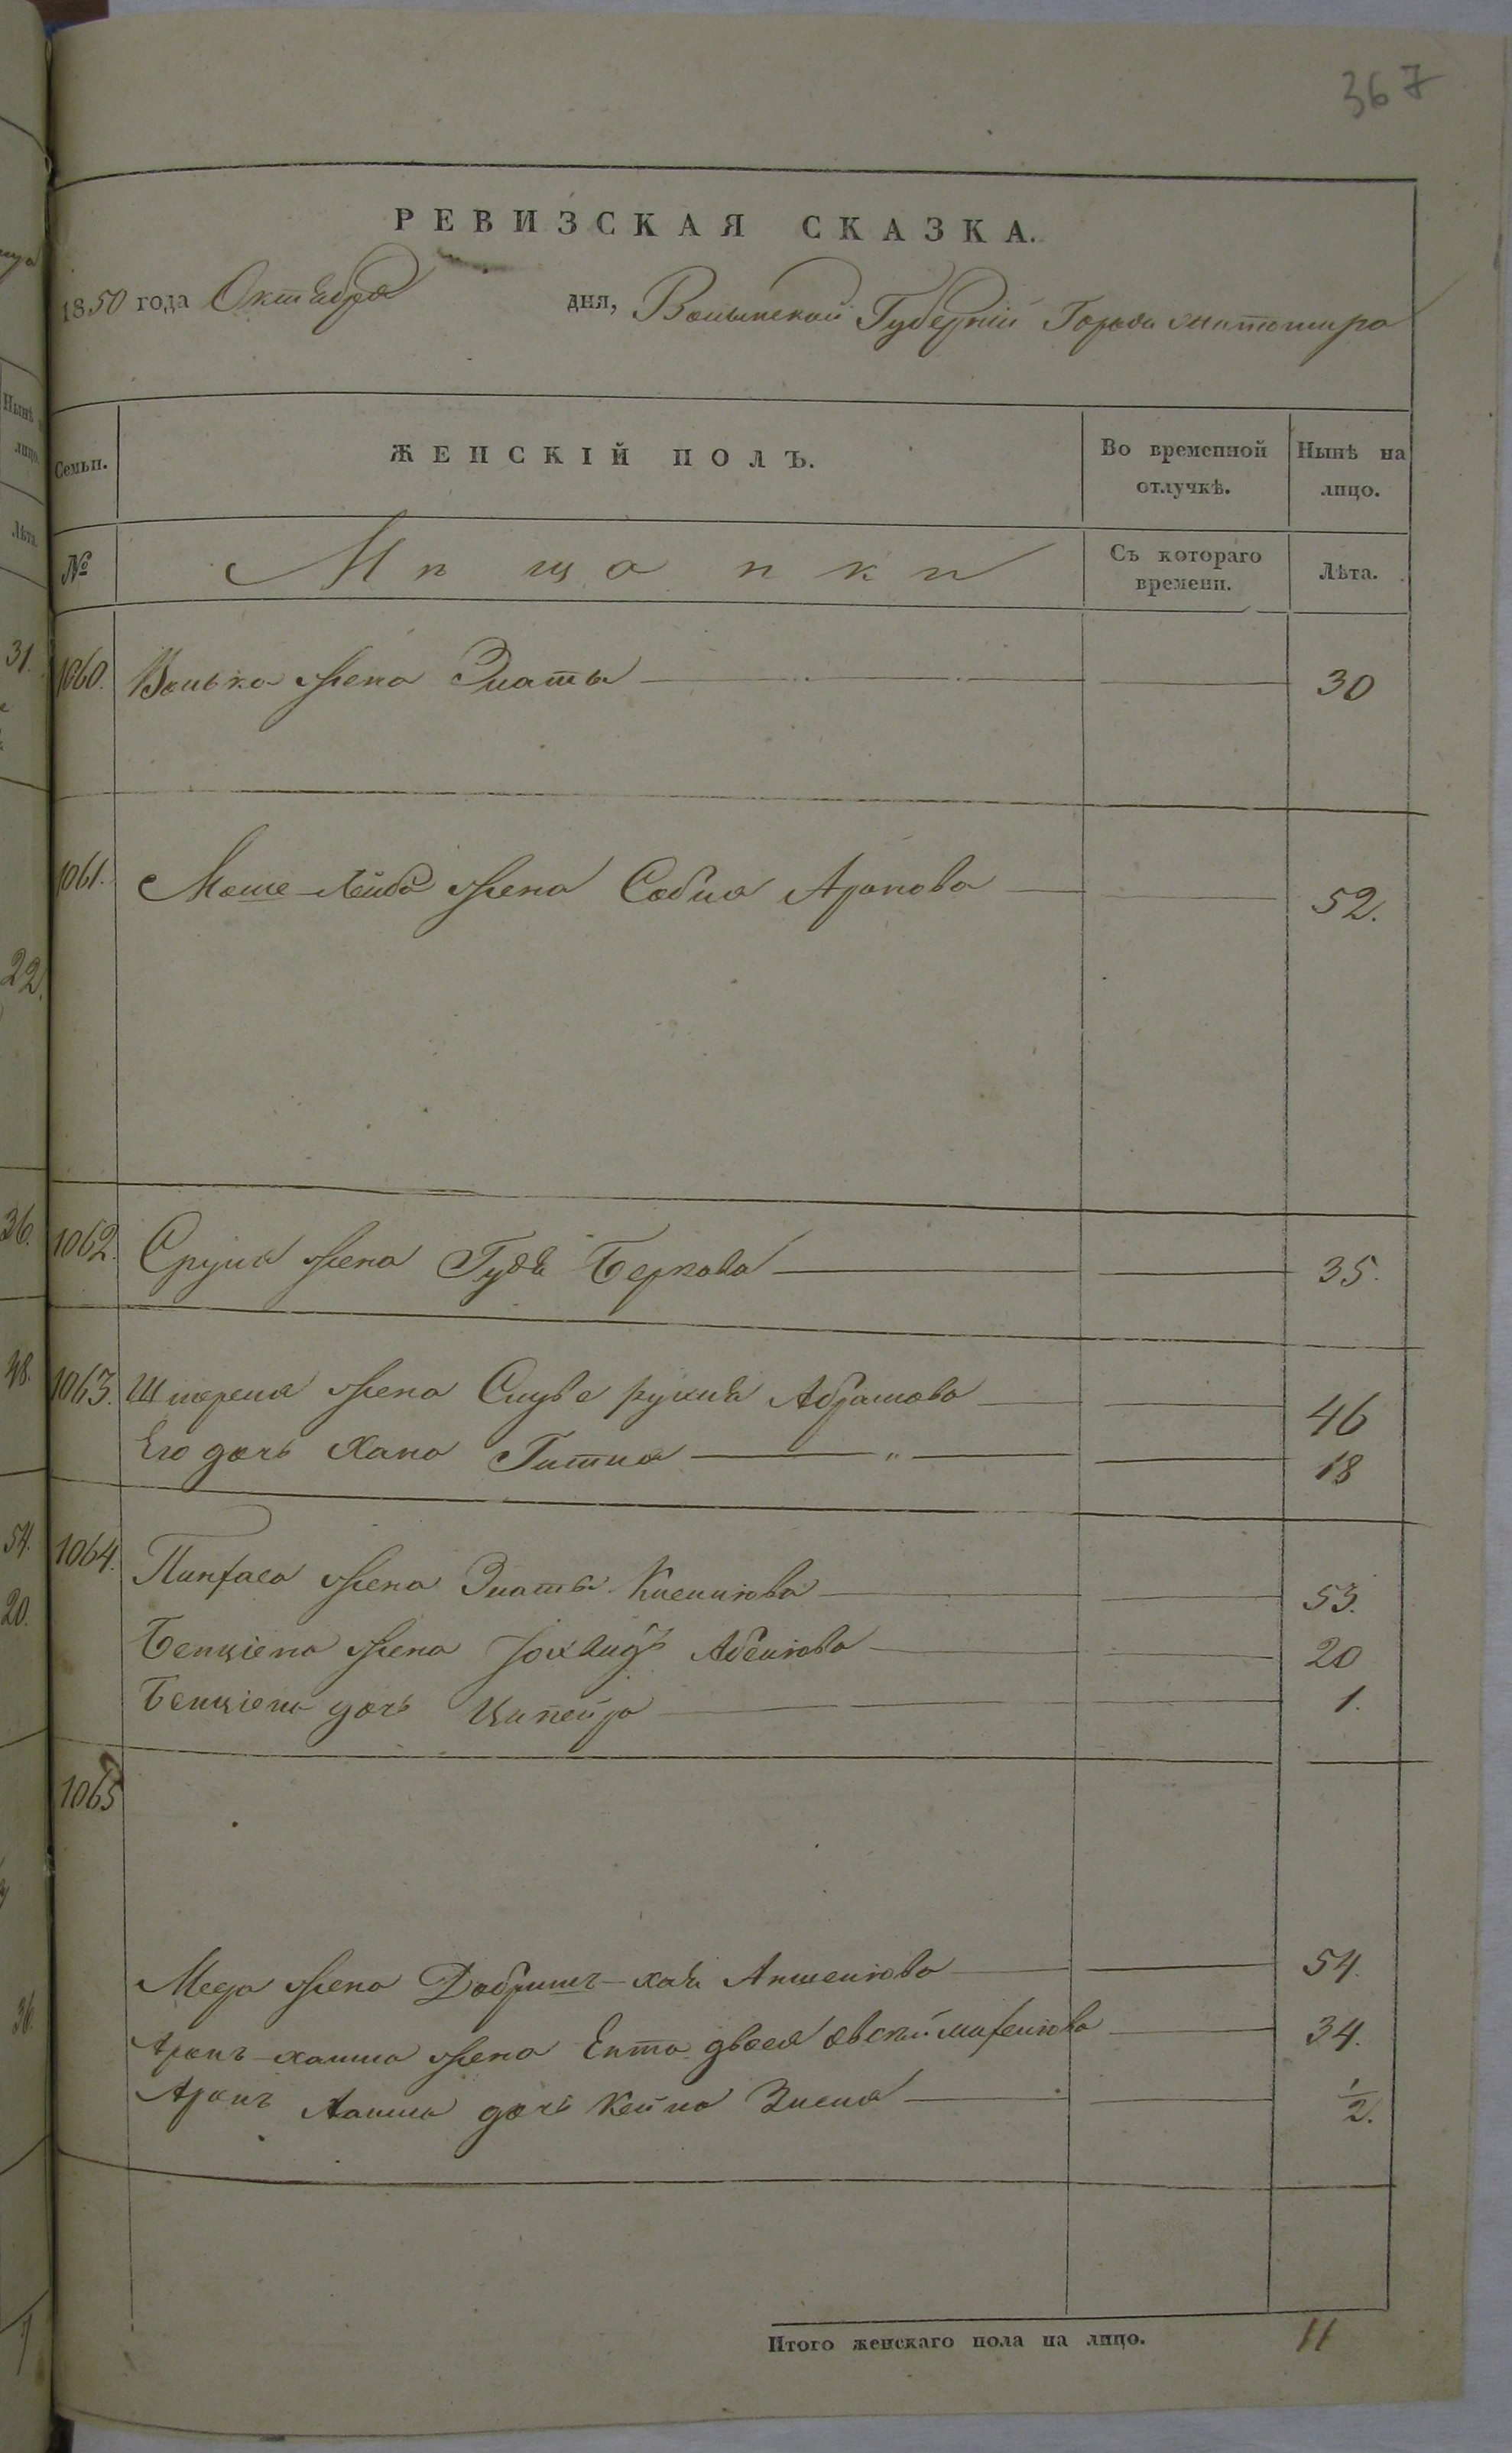 367
РЕВИЗСКАЯ СКАЗКА.
1850 года Октября дня, Волынской Губерніи Города Житомира
Семьи. ЖЕНСКІЙ ПОЛЪ. Во временной отлучкѣ. Нынѣ на лицо.
№ Мѣщанки Съ котораго времени. Лѣта.
1060. Волька жена Злата 30
1061. Моше-Лейба жена Собля Аронова 52.
1062. Сруля жена Гудя Беркова 35.
1063. Шмереля жена Слуве рухля Абрамова 46
Его дочь Хана Гитля " 18
1064. Пинхаса жена Злата 53.
Бенціена жена 20
Бенціена дочь Ципейра 1.
1065
Меера жена Добришъ-хая Аншелиова 54.
Аронъ-хаима жена Ента двося 34.
Аронъ Хаима дочь Кейла Зисля 1/2.
Итого женскаго пола на лицо. 11